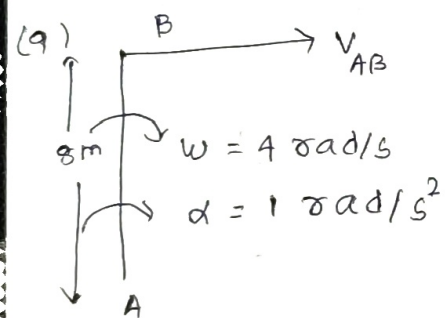 (9)
B
V_AB
8m
ω = 4 rad/s
α = 1 rad/s²
A